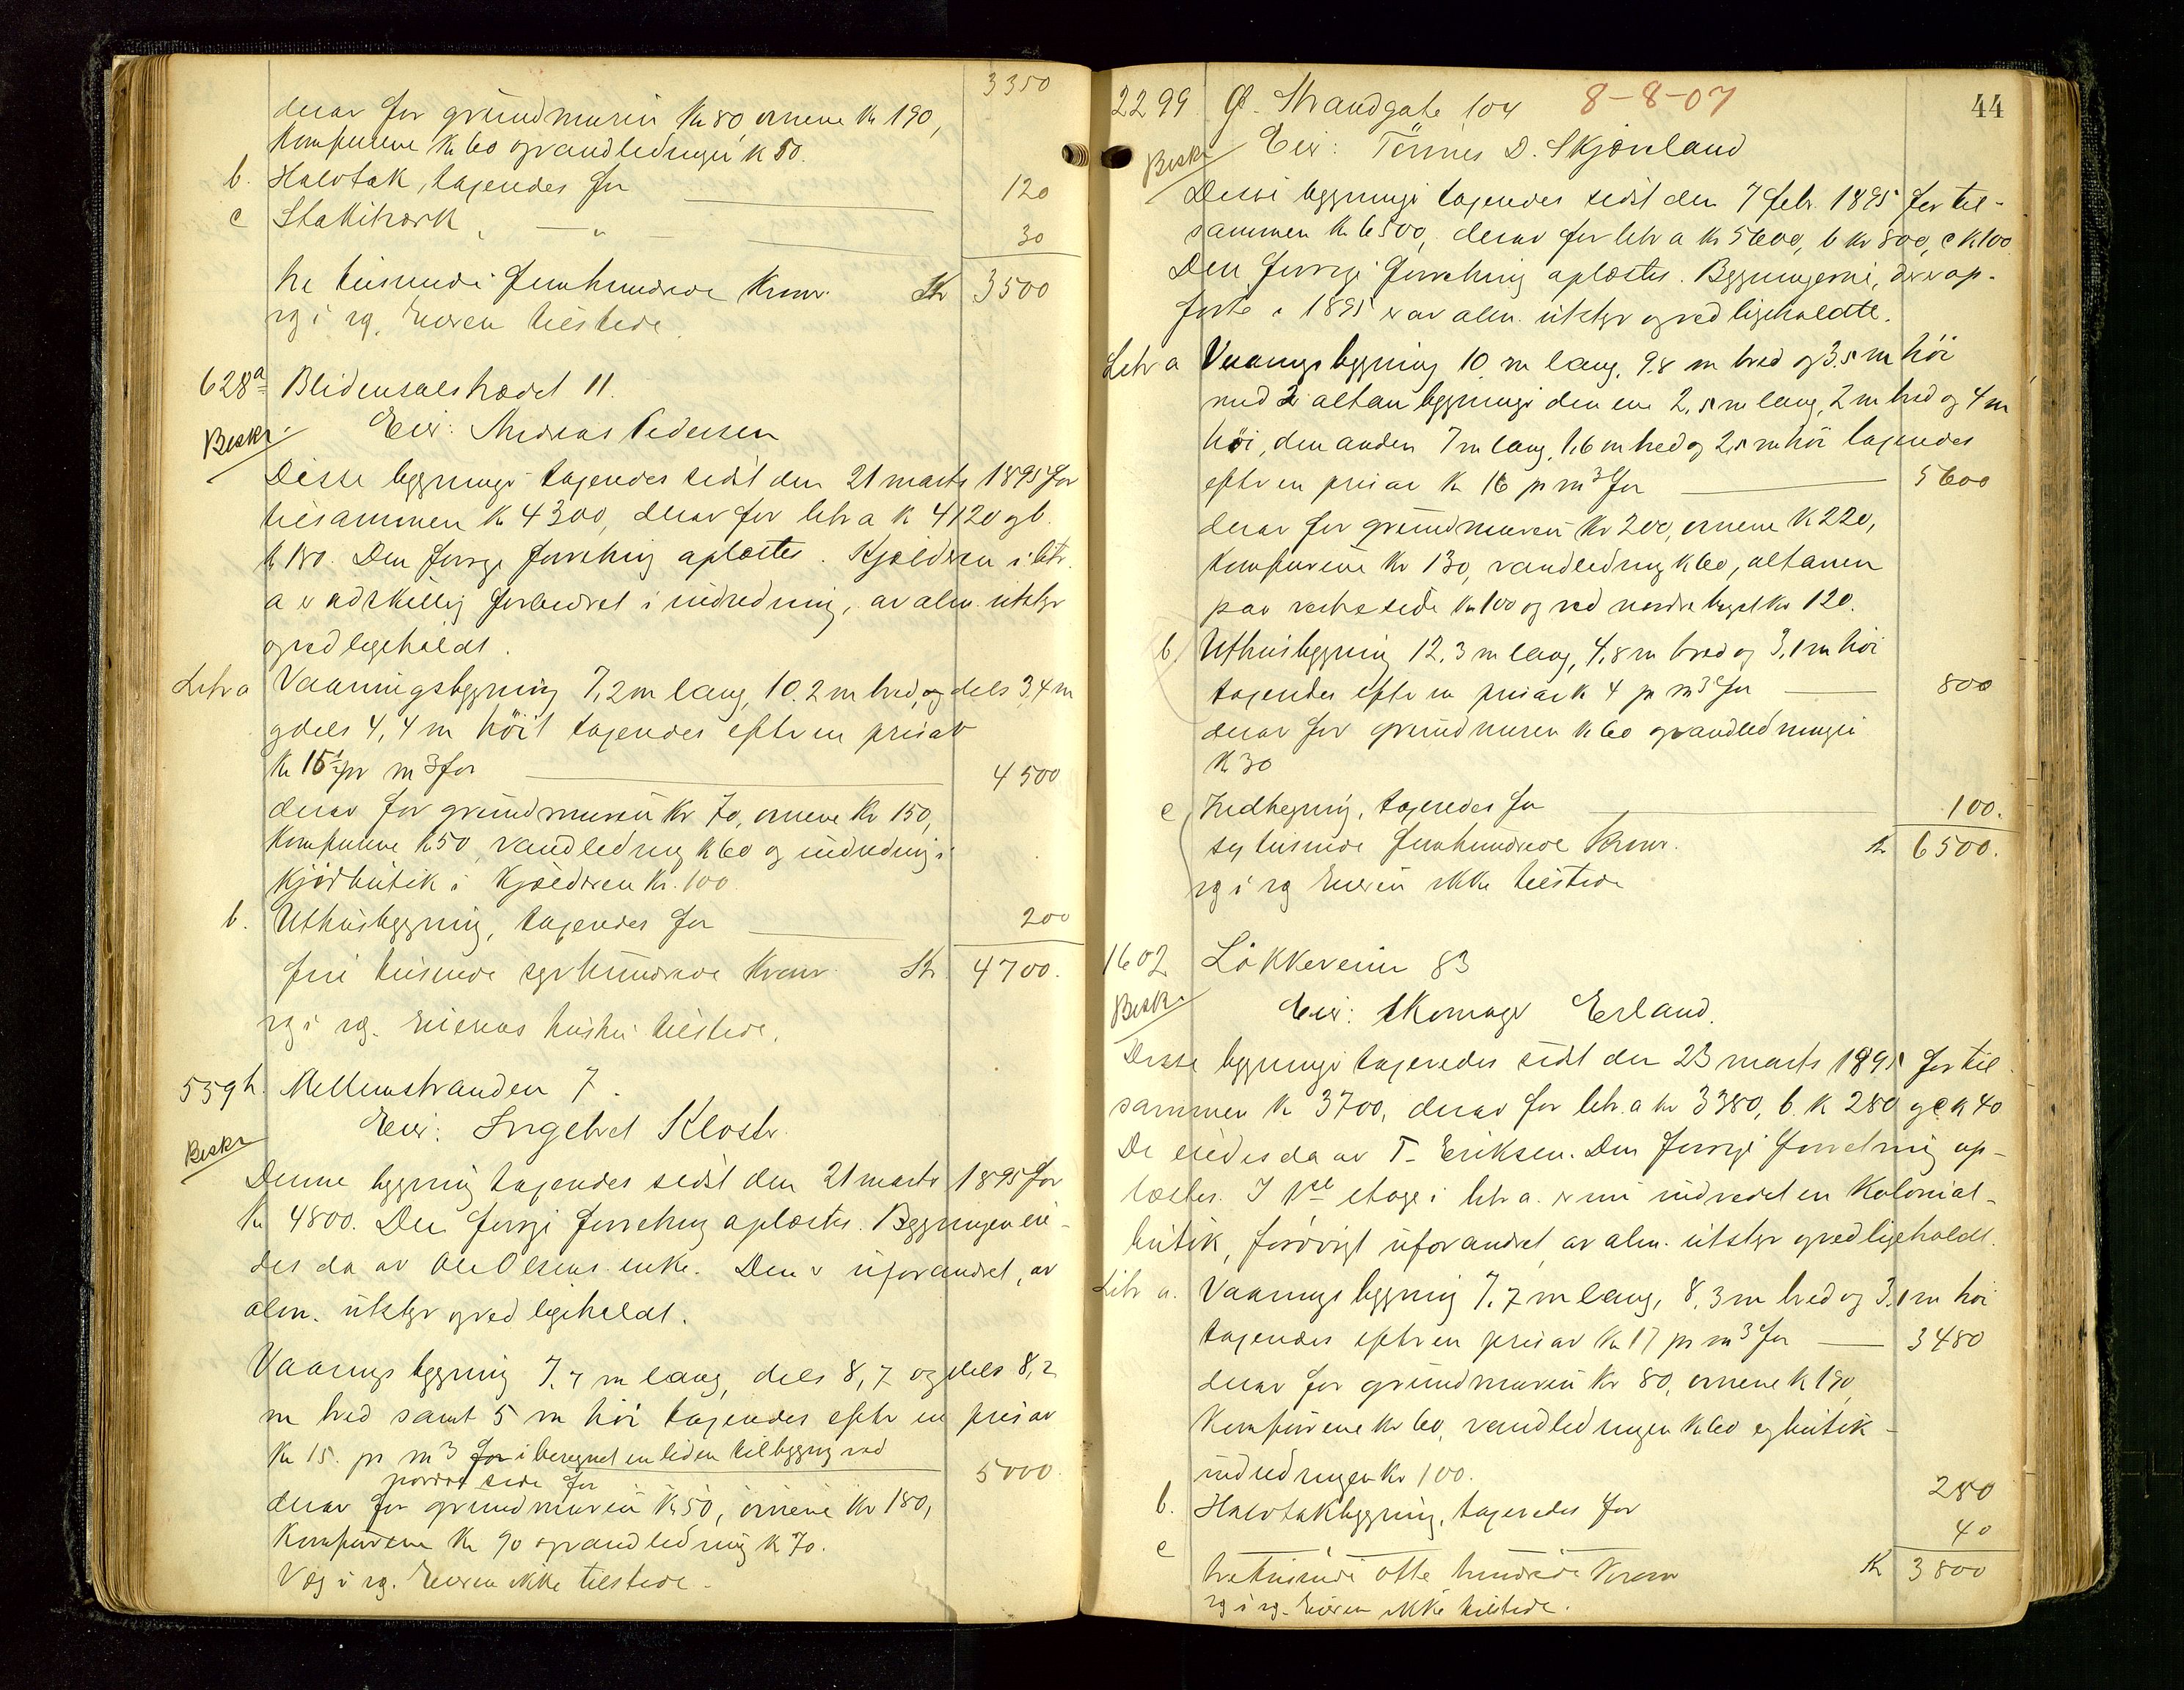 3350
derav for grundmuren Kr 80, ovnene Kr 190,
komfurene Kr 60 og vandledningen K 50.
b. Halvtak, taxeredes for 120
c Stakitværk, — " — 30
tre tusinde femhundrede Kroner. Kr 3500
rg i rg. Eieren tilstede
628a Blidensolstrædet 11.
Eier: Andreas Pedersen
Beskr.
Disse bygninger taxeredes sidst den 21 marts 1895 for
tilsammen Kr 4300, derav for litr a K 4120 og b.
K 180. Den forrige forretning oplæstes. Kjælderen i litr.
a er adskillig forbedret i indredning, av alm. utstyr
og vedligeholdt.
Litr a Vaaningsbygning 7,2 m lang, 10.2 m bred, og dels 3,4 m
og dels 4,4 m höit taxeredes efter en pris av
Kr 15 1/2 pr m3 for 4500
derav for grundmuren Kr 70, ovnene Kr 150,
komfurene K 50, vandledning K 60 og indredning i
kjödbutik i kjælderen Kr. 100
b. Uthusbygning, taxeredes for 200
fire tusinde syvhundrede Kroner. Kr. 4700.
rg i rg. Eierens hustru tilstede.
559h. Mellemstranden 7.
Eier: Ingebret Kloster.
Beskr
Denne bygning taxeredes sidst den 21 marts 1895 for
Kr 4800. Den forrige forretning oplæstes. Bygningen eie-
des da av Ole Olsens enke. Den er uforandret, av
alm. utstyr og vedligeholdt.
Vaaningsbygning 7.7 m lang, dels 8,7 og dels 8,2
m bred samt 5 m höi taxeredes efter en pris av
Kr 15. pr m3 for iberegnet en liden tilbygning ved
nordre side for 5000
derav for grundmuren K 50, ovnene Kr 180,
Komfurene Kr 90 og vandledning K 70.
Væg i rg. Eieren ikke tilstede.
44
2299 Ø. Strandgate 104 8-8-07
Eier: Tönnes D. Skjævland
Beskr
Disse bygninger taxeredes sidst den 7 febr. 1895 for til-
sammen Kr 6500, derav for litr a Kr 5600, b Kr 800, c K 100
Den forrige forretning oplæstes. Bygningerne, der er op-
förte i 1895 er av alm. utstyr og vedligeholdte.
Litr a Vaaningsbygning 10 m lang, 9.8 m bred og 3.5 m höi
med 2 altanbygninger den ene 2,5 m lang, 2 m bred og 4 m
höi, den anden 7 m lang, 1,6 m bred og 2,5 m höi taxeredes
efter en pris av Kr 16 pr m3 for 5600
derav for grundmuren Kr 200, ovnene K 220,
komfurene Kr 130, vandledning K 60, altanen
paa vestre side Kr 100 og ved nordre Kr 120.
b. Uthusbygning 12.3 m lang, 4,8 m bred og 3,1 m höi
taxeredes efter en pris av K 4 pr m3 for 800
derav for grundmuren K 60 og vandledningen
K 30
c Indhegning, taxeredes for 100.
sex tusinde femhundrede Kroner. Kr 6500.
rg i rg Eieren ikke tilstede
1602 Lökkeveien 83
Beskr
Eier: Skomager Erland.
Disse bygninger taxeredes sidst den 23 marts 1895 for til
sammen Kr 3700, derav for litr. a Kr 3380, b. K 280 og c K 40
De eiedes da av T. Eriksen. Den forrige forretning op-
læstes. I 1ste etage i litr a. er nu indredet en Kolonial-
butik, forövrigt uforandret av alm. utstyr og vedligeholdt.
Litr a. Vaaningsbygning 7.7 m lang, 8,3 m bred og 3.1 m höi
taxeredes efter en pris av Kr 17 pr m3 for 3480
derav for grundmuren Kr 80, ovnene K 190,
Komfurene Kr 60, vandledningen K 60 og butik-
indredningen Kr 100.
b. Halvtakbygning, taxeredes for 280
c 40
tre tusinde otte hundrede Kroner Kr 3800
rg i rg. Eieren ikke tilstede.